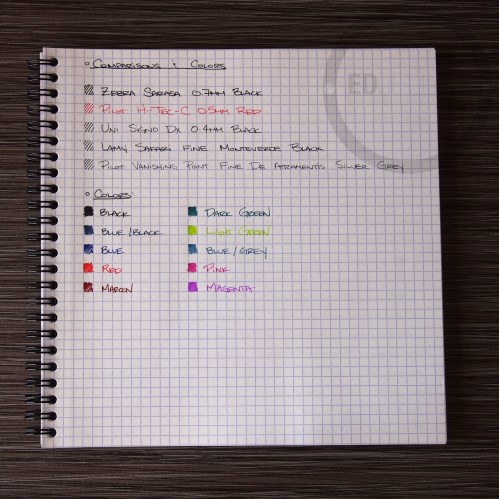 Comparisons & Colors
Zebra Sarasa 0.7mm Black
Pilot Hi-Tec-C 0.5mm Red
Uni Signo DX 0.4mm Black
Lamy Safari Fine Monteverde Black
Pilot Vanishing Point Fine De Atramentis Silver Grey
Colors:
Black
Blue/Black
Blue
Red
Maroon
Dark Green
Light Green
Blue/Grey
Pink
Magenta
ED